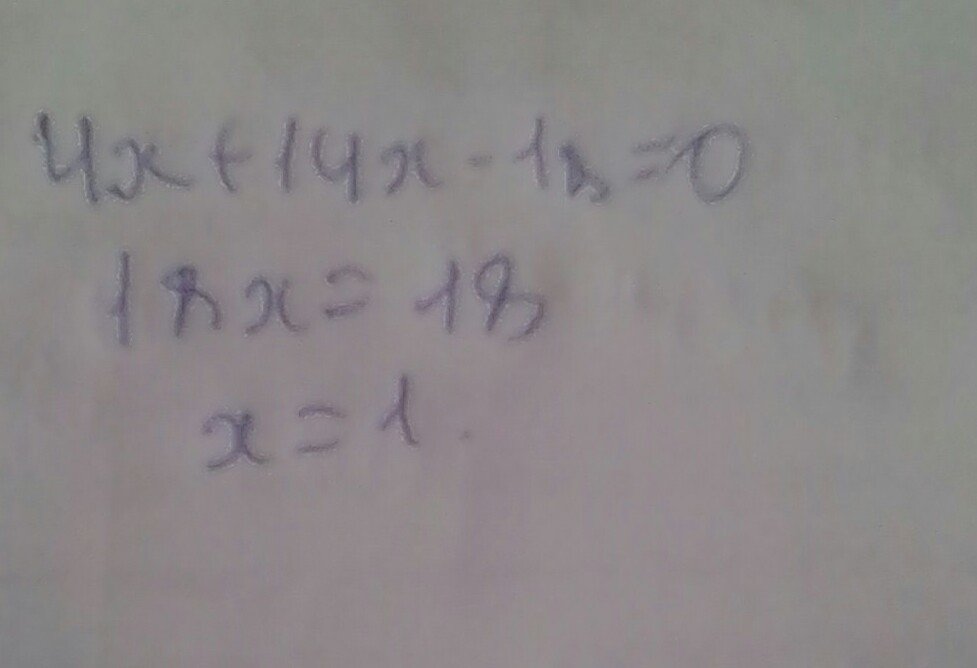 4x+14x-18=0
18x=18
x=1.